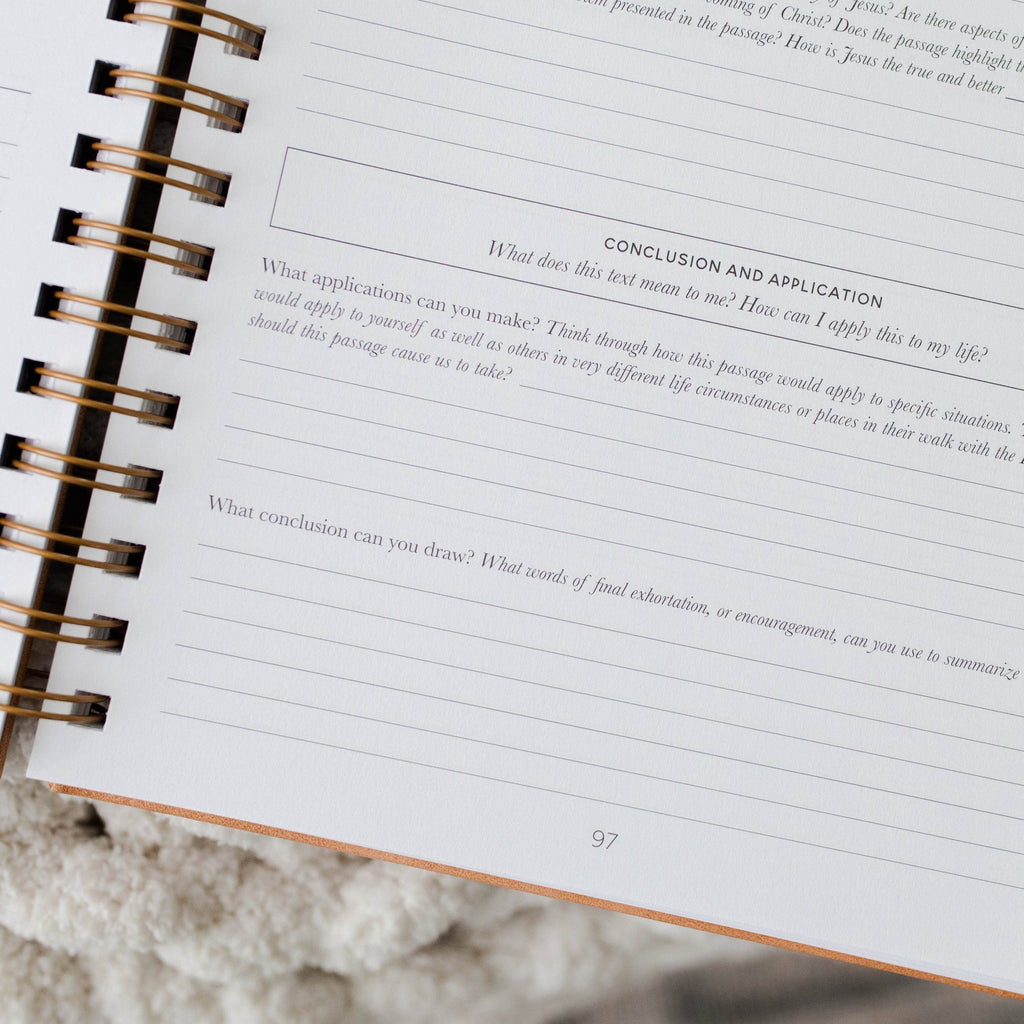 of Jesus? Are there aspects of
coming of Christ? Does the passage highlight
presented in the passage? How is Jesus the true and better
CONCLUSION AND APPLICATION
What does this text mean to me? How can I apply this to my life?
What applications can you make? Think through how this passage would apply to specific situations.
would apply to yourself as well as others in very different life circumstances or places in their walk with the
should this passage cause us to take?
What conclusion can you draw? What words of final exhortation, or encouragement, can you use to summarize
97